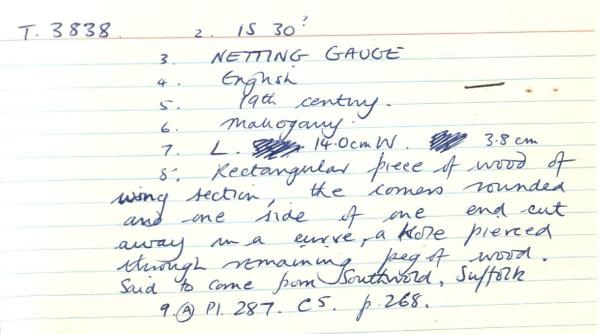 T. 3838. 2. IS 30?
3. NETTING GAUGE
4. English
5. 19th century.
6. Mahogany.
7. L. 14.0cm W. 3.8 cm
8. Rectangular piece of wood of
wing section, the corners rounded
and one side of one end cut
away in a curve, a hole pierced
through remaining peg of wood.
Said to come from Southwold, Suffolk
9. (A) Pl. 287. CS. p. 268.